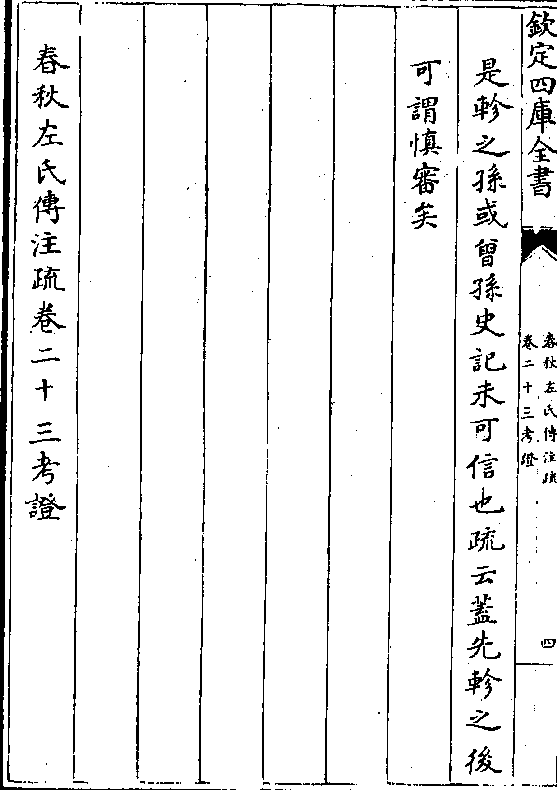 欽定四庫全書
春秋左氏傳注疏
卷二十三考證
四
是軫之孫或曾孫史記未可信也疏云蓋先軫之後
可謂慎審矣
春秋左氏傳注疏卷二十三考證